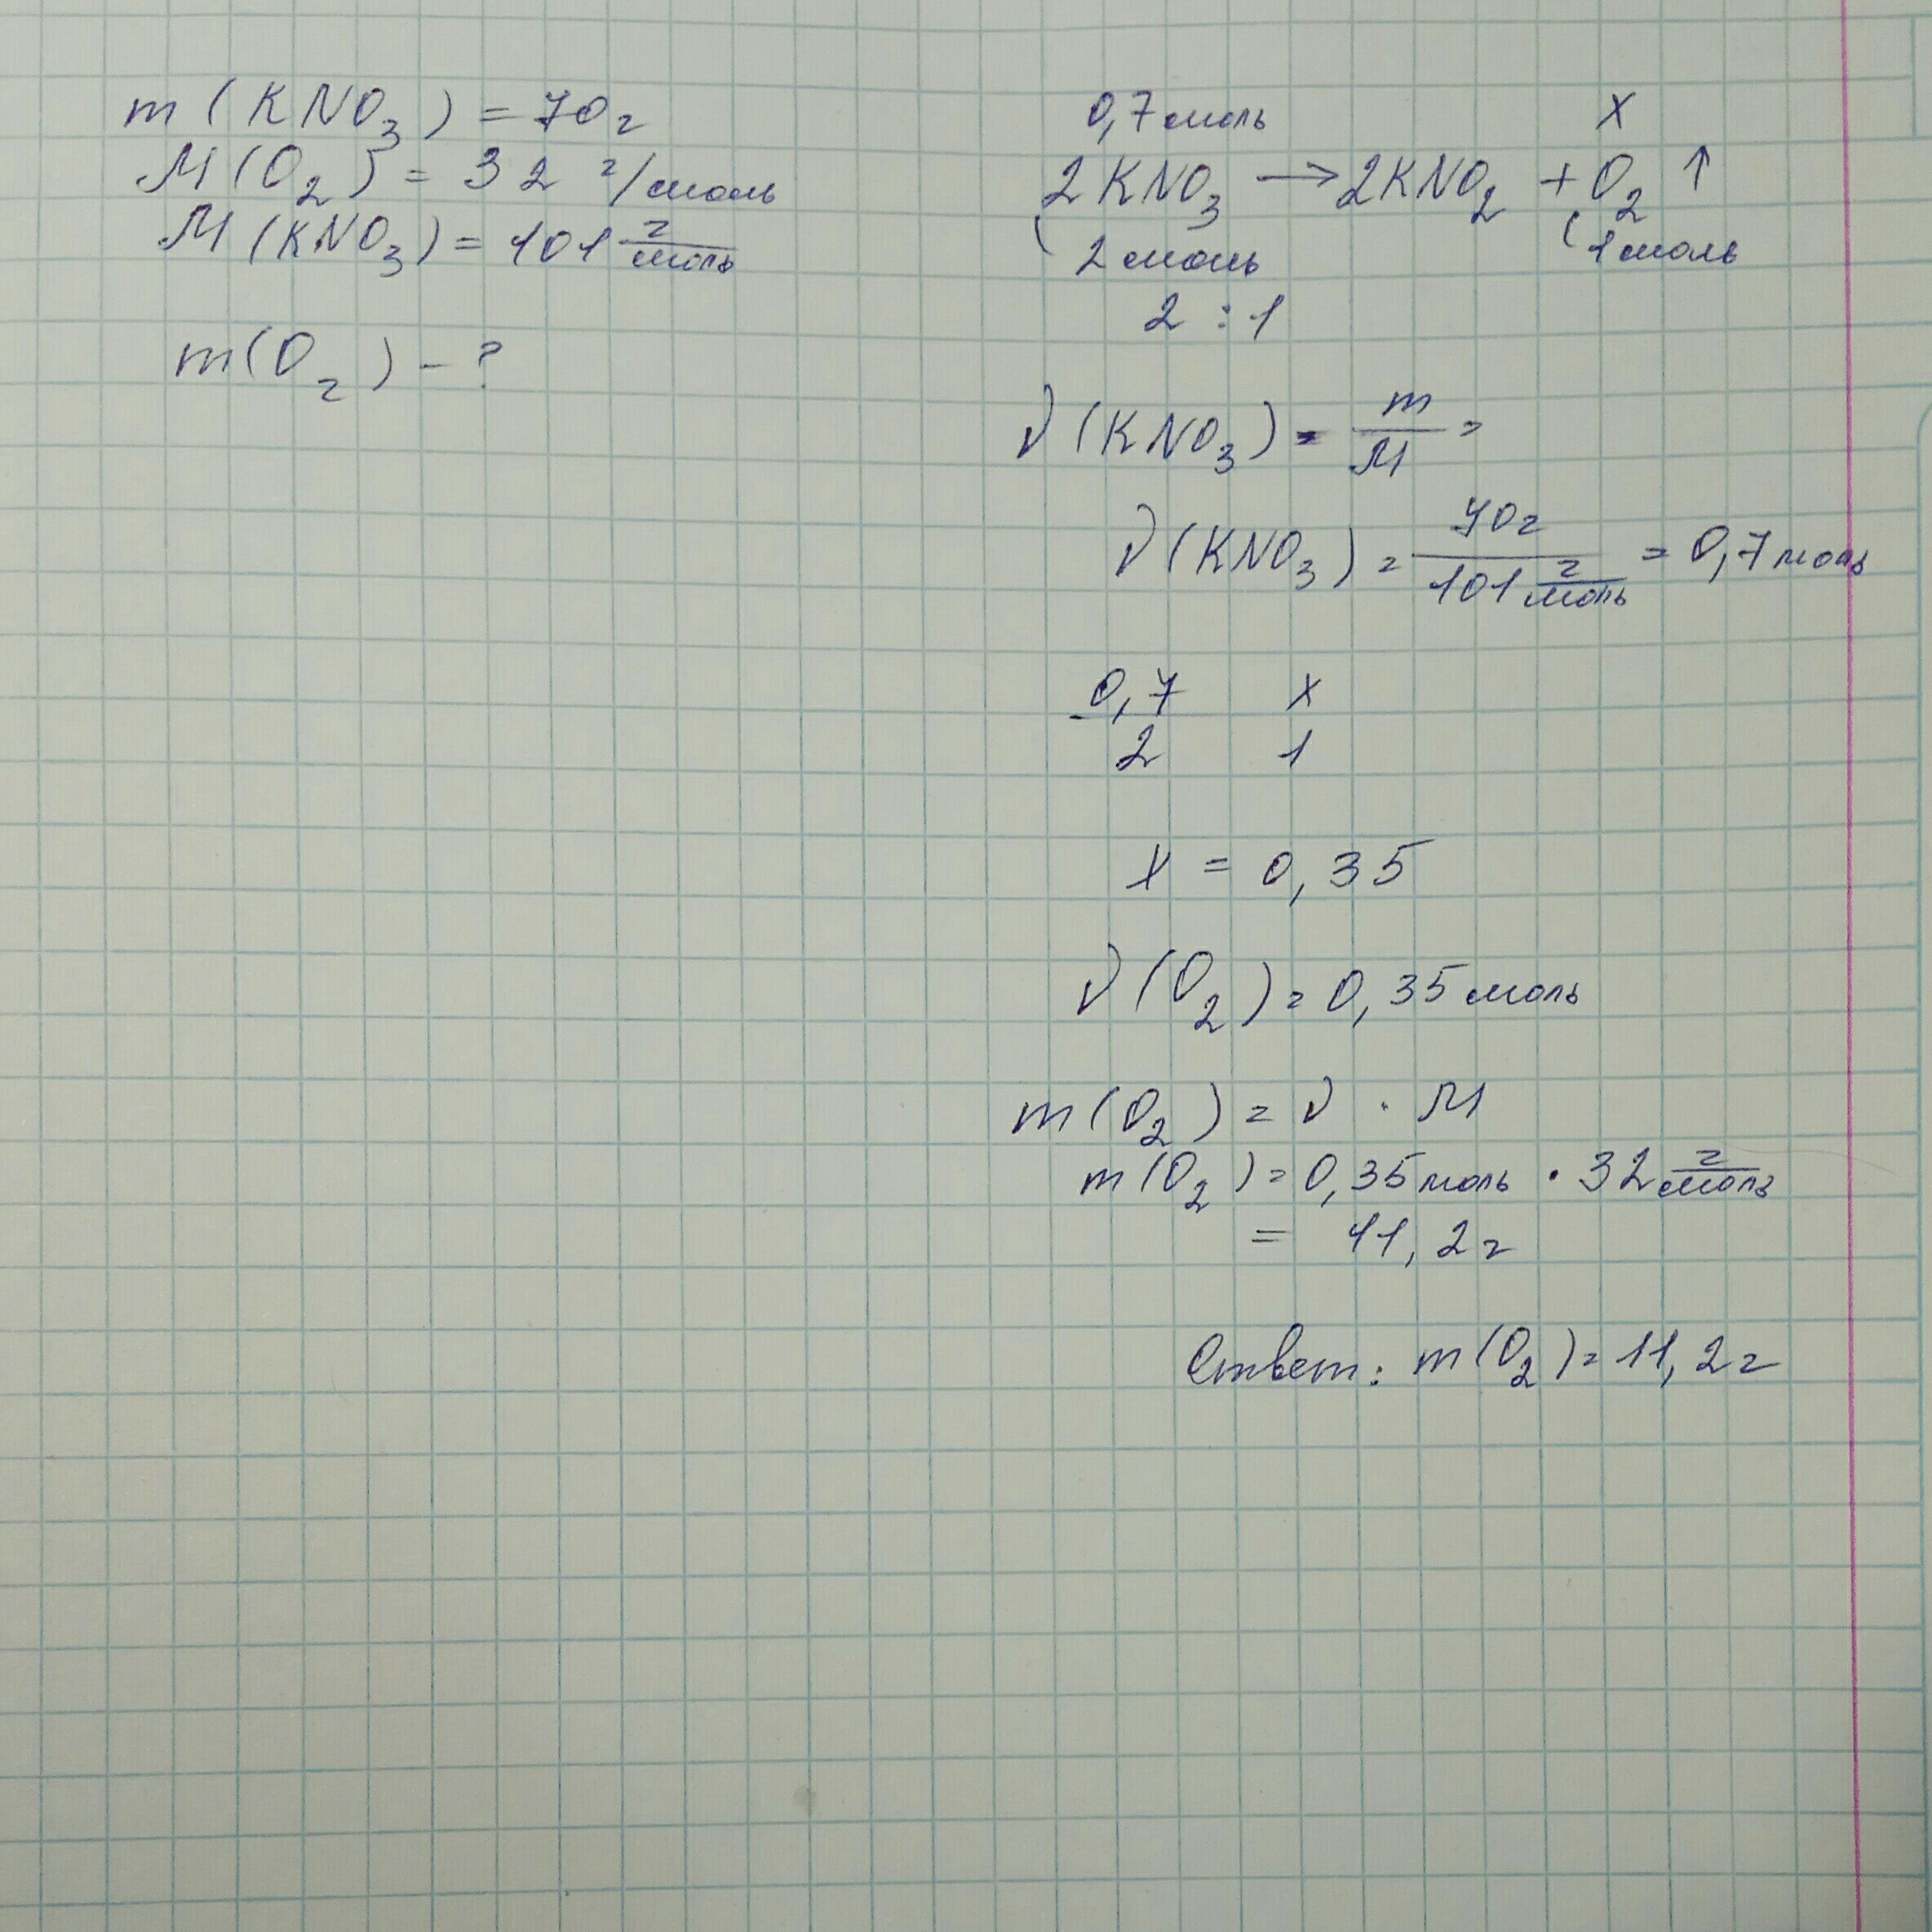 m(KNO₃) = 70г
M(O₂) = 32 г/моль
M(KNO₃) = 101 г/моль
m(O₂) – ?
0,7 моль X
2KNO₃ → 2KNO₂ + O₂ ↑
2 моль 1 моль
2 : 1
ν(KNO₃) = m/M =
ν(KNO₃) = 70г / 101 г/моль = 0,7 моль
0,7 X
2 1
X = 0,35
ν(O₂) = 0,35 моль
m(O₂) = ν · M
m(O₂) = 0,35 моль · 32 г/моль
= 11,2г
Ответ: m(O₂) = 11,2г